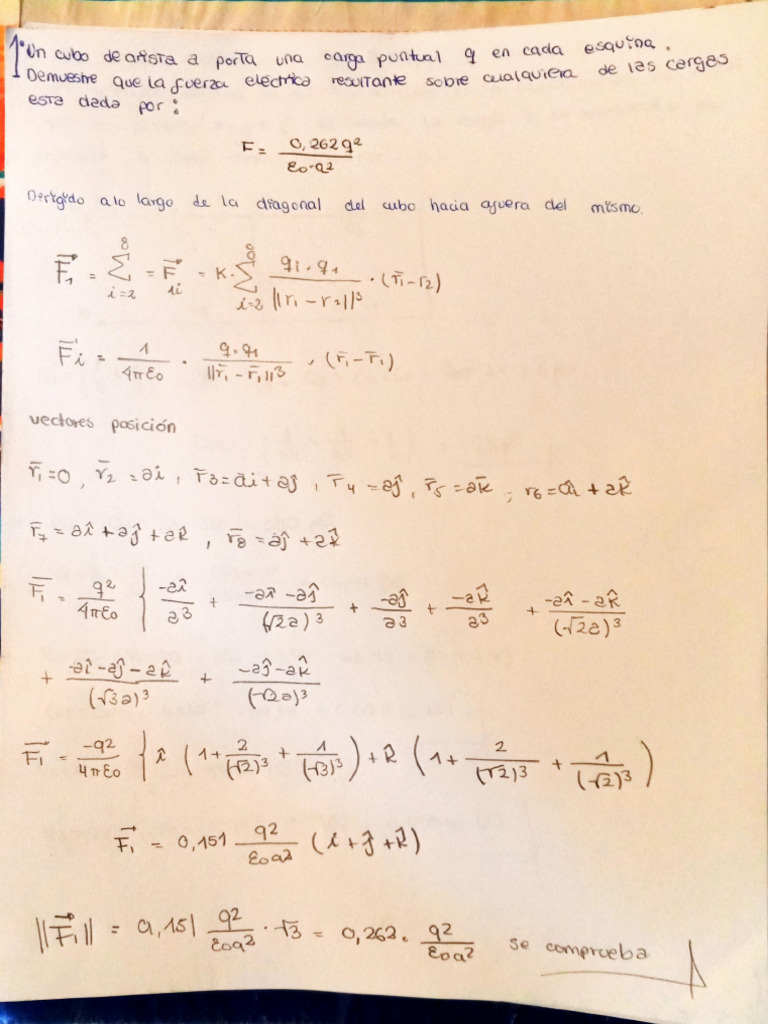 1° Un cubo de arista a porta una carga puntual q en cada esquina.
Demuestre que la fuerza eléctrica resultante sobre cualquiera de las cargas
esta dada por:
F = 0,262q² / ε₀·a²
Dirigido a lo largo de la diagonal del cubo hacia afuera del mismo.
F⃗₁ = Σ_{i=2}^{8} = F⃗_{1i} = K·Σ_{i=2}^{8} qᵢ·q₁ / ||r₁ - r₂||³ · (r̄₁ - r₂)
F⃗i = 1 / 4πε₀ · q·q₁ / ||r̄₁ - r̄₁||³ · (r̄₁ - r̄₁)
vectores posición
r̄₁=0, r̄₂ = ai, r̄₃ = ai + aĵ, r̄₄ = aĵ, r̄₅ = ak̄, r₆ = aî + ak̂
r̄₇ = aî + aĵ + ak̂, r̄₈ = aĵ + ak̂
F̄₁ = q² / 4πε₀ { -aî / a³ + -aî - aĵ / (√2a)³ + -aĵ / a³ + -ak̂ / a³ + -aî - ak̂ / (√2a)³
+ -aî - aĵ - ak̂ / (√3a)³ + -aĵ - ak̂ / (√2a)³
F⃗₁ = -q² / 4πε₀ { î (1 + 2 / (√2)³ + 1 / (√3)³) + k̂ (1 + 2 / (√2)³ + 1 / (√2)³)
F⃗₁ = 0,151 q² / ε₀a² (i + ĵ + k̂)
||F⃗₁|| = 0,151 q² / ε₀a² · √3 = 0,262 · q² / ε₀a² se comprueba